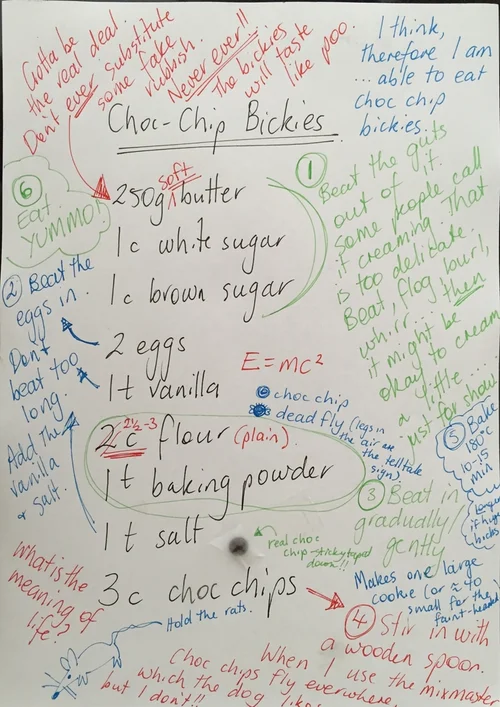 Gotta be
the real deal.
Don't ever substitute
some fake
rubbish.
Never ever!!
The bickies
will taste
like poo.
I think,
therefore I am
... able to eat
choc chip
bickies.
Choc-Chip Bickies
250g soft butter
1c white sugar
1c brown sugar
2 eggs
1t vanilla
2c 2½-3 flour (plain)
1t baking powder
1t salt
3c choc chips
1
Beat the guts
out of it.
Some people call
it creaming. That
is too delicate.
Beat, flog, burl,
whirr... then
it might be
okay to cream
a little...
just for show.
2 Beat the
eggs in.
Don't
beat too
long.
Add the
vanilla
& salt.
E=mc²
choc chip
dead fly (legs in
the air are
the telltale
sign)
3 Beat in
gradually/
gently
real choc
chip - stickytaped
down!!
4 Stir in with
a wooden spoon.
When I use the mixmaster
choc chips fly everywhere,
which the dog likes
but I don't!!
5 Bake
180°c
10-15
min
longer
if huge
bickies
Makes one large
cookie (or ≈ 40
small for the
faint-hearted
6
Eat.
YUMMO!
What is the
meaning of
life?
Hold the rats.